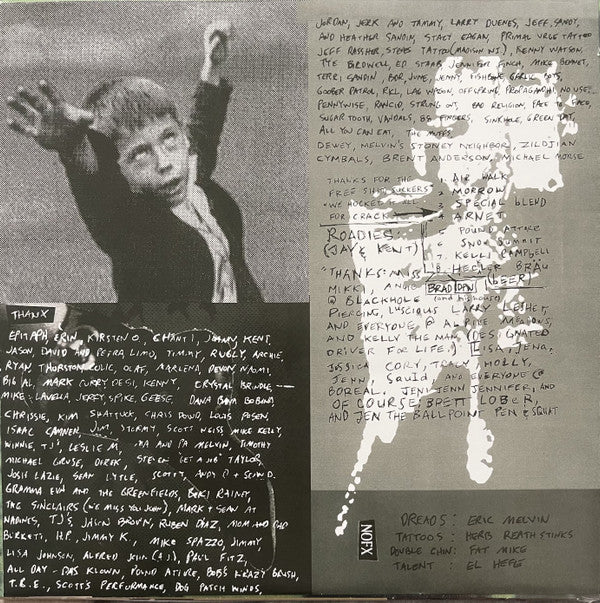 THANX
EPITAPH, ERIN, KIRSTEN O, CHANTI, JOHNNY KENT,
JASON, DAVID AND PETRA LIMO, TIMMY, RUGLY, ARCHIE,
RYAN THORSTON, OLAF, MARLENA, DEVON, NAOMI,
BIG AL, MARK CURRY, DESI, KENNY, CRYSTAL
MIKE LAVELLA, JEREY, SPIKE, GEESE, DANA
CHRISSIE, KIM SHATTUCK, CHRIS DOWD, LOUIS POSEN,
ISAAC CAMNER, JIM, STORMY, SCOTT WEISS, MIKE KELLY,
WINNIE, TJ, LESLIE M, MA AND PA MELVIN, TIMOTHY
MICHAEL CRUSE, DEREK, STEVEN "GET A JOB" TAYLOR,
JOSIE LAZIE, SEAN LYTLE, SCOTT, ANDY
GRAMMA EVN AND THE GREENFIELDS, BEKI RAINEY,
THE SINCLAIRS (WE MISS YOU JOHN), MARK + SEAN AT
NARDINES, TJ'S, JASON BROWN, RUBEN DIAZ, MOM AND DAD
BURKETT, H.P., JIMMY K., MIKE SPAZZO, JIMMY,
LISA JOHNSON, ALFRED JOHN (A.J), PAUL FITZ,
ALL DAY - DAS KLOWN, POUND ATTIRE, BOB'S KRAZY BRUSH,
T.R.E., SCOTT'S PERFORMANCE, DOG PATCH WINOS,
JORDAN, JERK AND TAMMY, LARRY DUENES, JEFF, SANDY,
AND HEATHER SANDIN, STACY EAGAN, PRIMAL URGE TATTOO
JEFF RASSHER, STEVES TATTOO (MADISON WI.), KENNY WATSON
TYE BIRDWELL, ED STARR, JENNIFER FINCH, MIKE BENNET,
TERRI GANDIN, BOB, JUNE, JENNY, FISHBONE, GARLIC, POTS,
GOOBER PATROL, RKL, LAG WAGON, OFFSPRING, PROPAGANDHI, NO USE..
PENNYWISE, RANCID, STRUNG OUT, BAD RELIGION, FACE TO FACE,
SUGAR TOOTH, VANDALS, BG WINGERS, SINKHOLE, GREEN DAY,
ALL YOU CAN EAT, THE MUFFS
DEWEY, MELVIN'S STONEY NEIGHBOR, ZILDJIAN
CYMBALS, BRENT ANDERSON, MICHAEL MORSE
THANKS FOR THE
FREE SHIT, SUCKERS
"WE HOCKED IT ALL
FOR CRACK"
1. AIR WALK
2. MORROW
3. SPECIAL BLEND
4. ARNET
5. POUND ATTIRE
6. SNOW SUMMIT
7. KELLI CAMPBELL
8. HECTER BRÄU
(BEER)
ROADIES:
(JAY & KENT)
"THANKS: MISS
MIKKI AND BRAD DAN
@ BLACKHOLE (and his house)
PIERCING, LUSCIOUS LARRY LETHET,
AND EVERYONE @ ALPINE MEADOWS,
AND KELLY THE MAN, DESIGNATED
DRIVER FOR LIFE, LISA, JENA,
JESSICA, CORY, TRACY, HOLLY,
JENN, SQUID, AND EVERYONE @
BOREAL, JEN, JENN, JENNIFER, AND
OF COURSE, BRETT LOBER,
AND JEN THE BALLPOINT PEN & SQUAT
NOFX
DREADS: ERIC MELVIN
TATTOOS: HERB REATH STINKS
DOUBLE CHIN: FAT MIKE
TALENT: EL HEFE